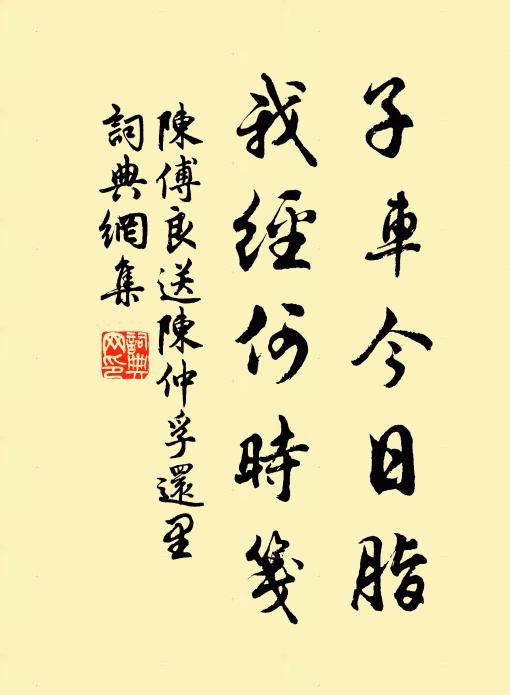 子車今日脂
我經何時箋
陳傅良送陳仲孚還里
詞典網集
詞典
网印